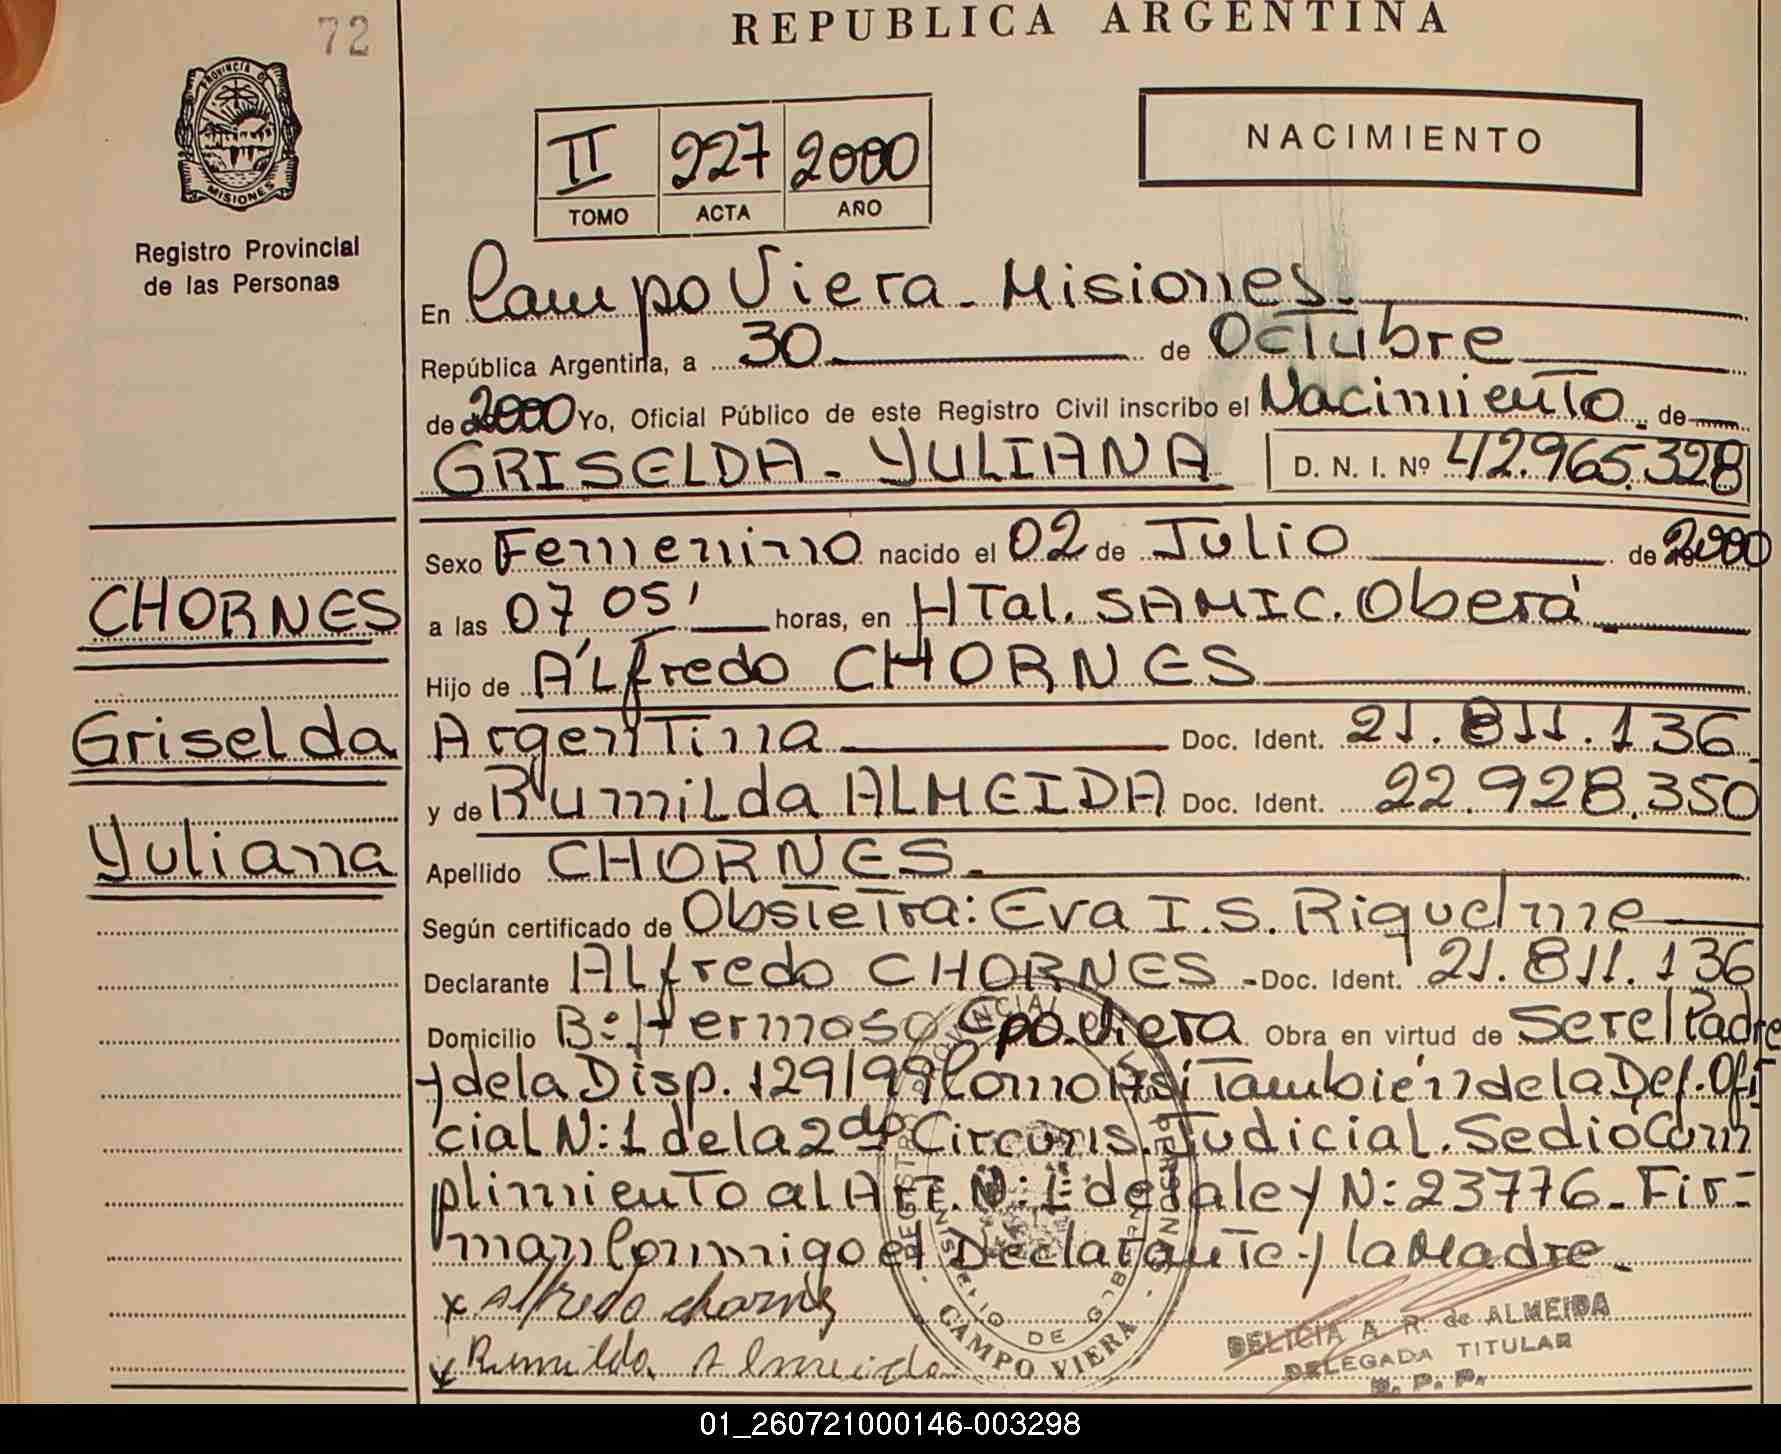 72
REPUBLICA ARGENTINA
PROVINCIA DE
MISIONES
Registro Provincial
de las Personas
II 227 2000
TOMO ACTA AÑO
NACIMIENTO
En Campo Viera - Misiones.
República Argentina, a 30 de Octubre
de 2000 Yo, Oficial Público de este Registro Civil inscribo el Nacimiento de
GRISELDA - YULIANA D. N. I. Nº 42.965.328
Sexo Femenino nacido el 02 de Julio de 2000
CHORNES
a las 07 05' horas, en HTal. SAMIC. Oberá
Hijo de Alfredo CHORNES
Griselda
Argentina Doc. Ident. 21.811.136
y de Rumilda ALMEIDA Doc. Ident. 22.928.350
Yuliana
Apellido CHORNES.
Según certificado de Obstetra: Eva I. S. Riquelme
Declarante Alfredo CHORNES - Doc. Ident. 21.811.136
Domicilio B: Hermoso Cpo. Viera Obra en virtud de Ser el Padre
y de la Disp. 129/99 Como Así También de la Def. Ofi
cial N: 1 de la 2da Circuns. Judicial. Se dio Cum
plimiento al Art. N: 1 de la ley N: 23776 - Fir-
man Conmigo el Declarante y la Madre -
x Alfredo chornes
x Rumilda Almeida
REGISTRO PROVINCIAL
CAMPO VIERA
DELICIA A. R. de ALMEIDA
DELEGADA TITULAR
R. P. P.
01_260721000146-003298